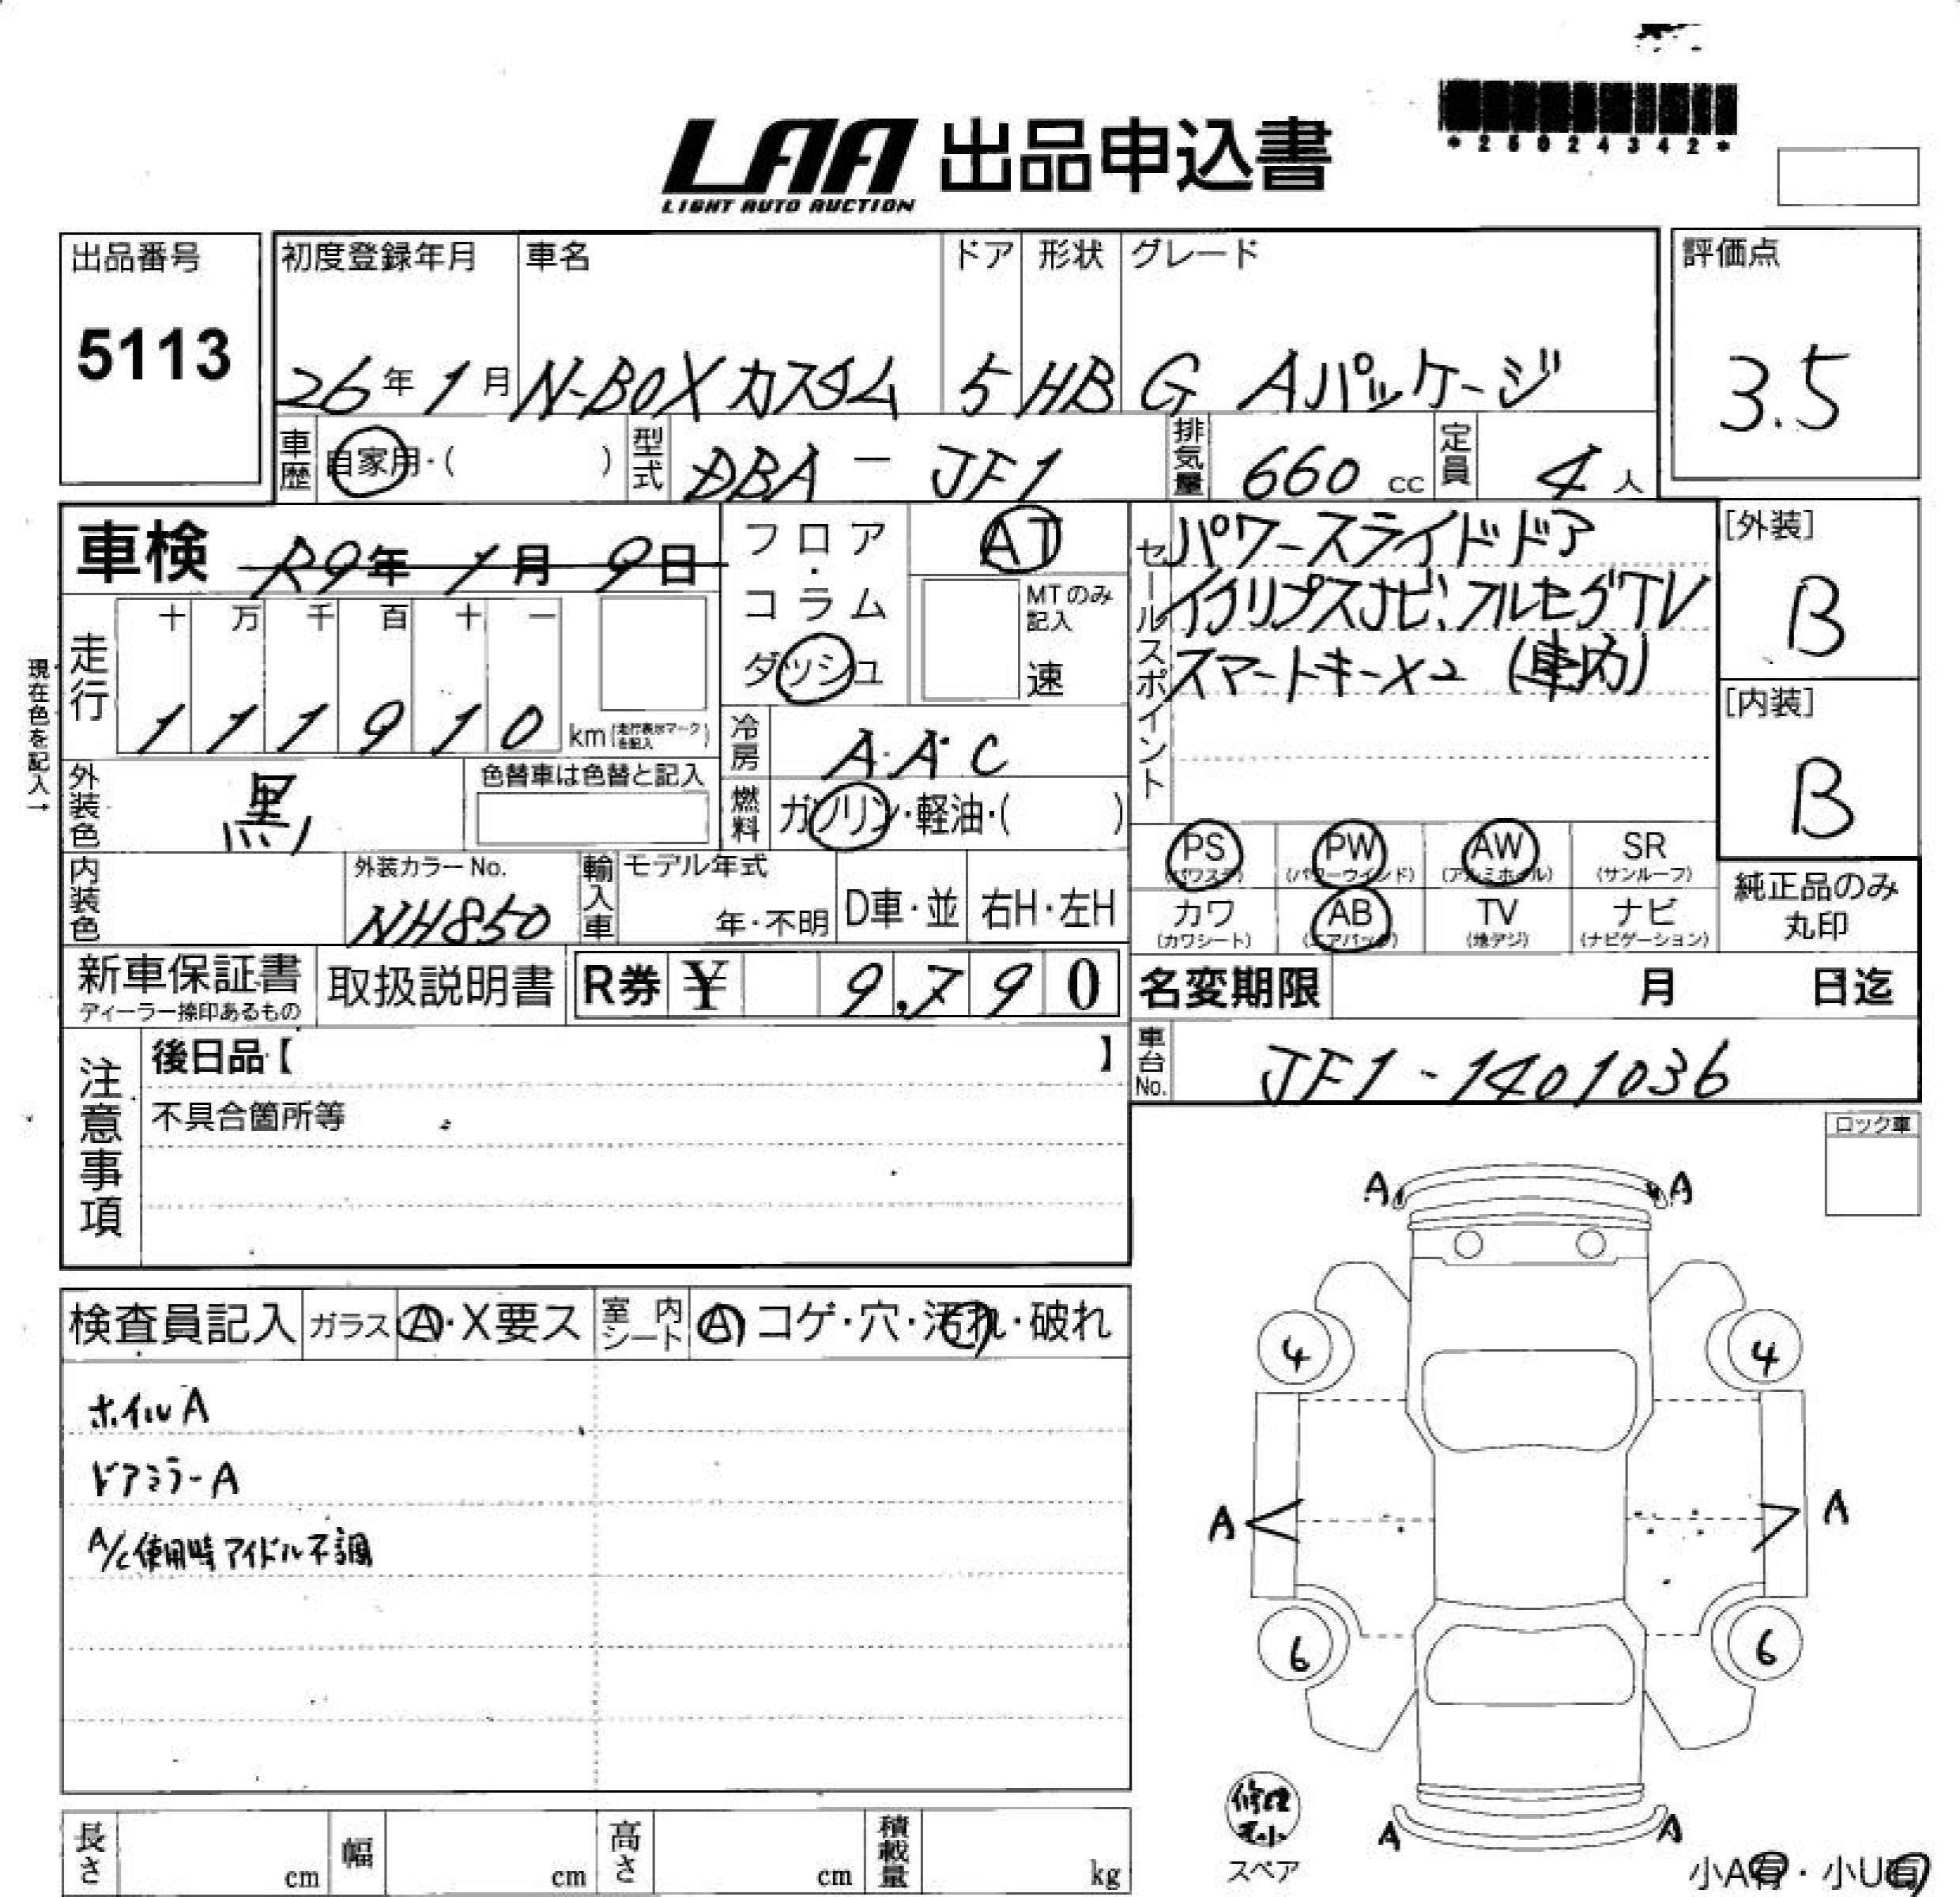 *25024342*
LAA 出品申込書
LIGHT AUTO AUCTION
出品番号
5113
初度登録年月 車名 ドア 形状 グレード
26年1月 N-BOXカスタム 5 HB G Aパッケージ
評価点
3.5
車歴 自家用・( ) 型式 DBA - JF1 排気量 660 cc 定員 4人
車検 R9年1月9日
フロア・コラム
ダッシュ
AT
MTのみ記入
速
走行
十 万 千 百 十 一
1 1 1 9 1 0 km(走行表示マークを記入)
現在色を記入→
セールスポイント
パワースライドドア
イクリプスナビ、フルセグTV
スマートキー×2 (車内)
[外装]
B
[内装]
B
冷房 A・A・C
燃料 ガソリン・軽油・( )
外装色 黒
色替車は色替と記入
内装色
外装カラーNo.
NH850
輸入車 モデル年式
年・不明 D車・並 右H・左H
PS (パワステ) PW (パワーウインド) AW (アルミホイル) SR (サンルーフ)
カワ (カワシート) AB (エアバッグ) TV (地デジ) ナビ (ナビゲーション)
純正品のみ
丸印
新車保証書
ディーラー捺印あるもの
取扱説明書
R券 ¥ 9,790
名変期限 月 日迄
車台No. JF1-1401036
注意事項
後日品【 】
不具合箇所等
ロック車
検査員記入 ガラス A・X要ス 室内シート A コゲ・穴・汚れ・破れ
ホイルA
ドアミラーA
A/C使用時アイドル不調
A A
4 4
A A
6 6
A A
修理キット
スペア
小A有・小U有
長さ cm 幅 cm 高さ cm 積載量 kg